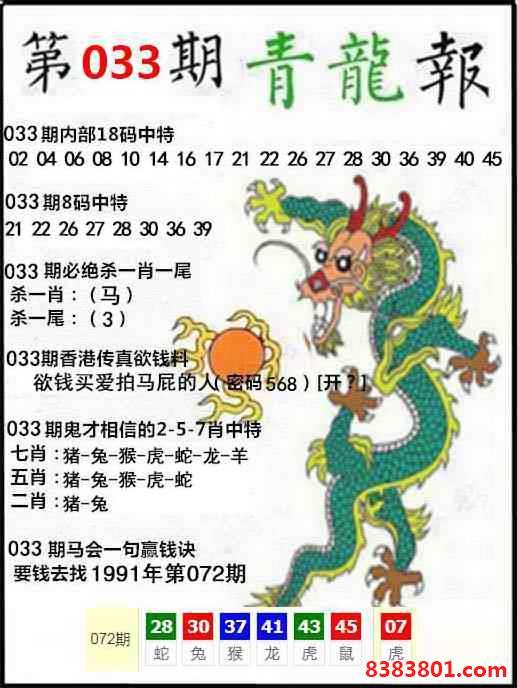 第033期青龍報
033期内部18码中特
02 04 06 08 10 14 16 17 21 22 26 27 28 30 36 39 40 45
033期8码中特
21 22 26 27 28 30 36 39
033期必绝杀一肖一尾
杀一肖:(马)
杀一尾:(3)
033期香港传真欲钱料
欲钱买爱拍马屁的人(密码568)[开?]
033期鬼才相信的2-5-7肖中特
七肖:猪-兔-猴-虎-蛇-龙-羊
五肖:猪-兔-猴-虎-蛇
二肖:猪-兔
033期马会一句赢钱诀
要钱去找1991年第072期
072期 28 30 37 41 43 45 07
蛇 兔 猴 龙 虎 鼠 虎
8383801.com